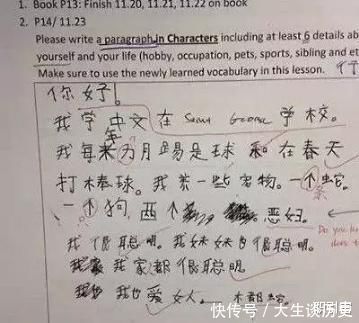 1. Book P13: Finish 11.20, 11.21, 11.22 on book
2. P14/ 11.23
Please write a paragraph in Characters including at least 6 details ab
yourself and your life (hobby, occupation, pets, sports, sibling and et
Make sure to use the newly learned vocabulary in this lesson.
你好!
我学中文在 Saint George 学校。
我每年 月踢是球和在春天
打棒球。我养一些宠物。一个蛇。
条
一个狗,两个 恶妇。
我很聪明。我妹妹也很聪明。
我家都很聪明。
我也爱女人。 木都
Do you
快传号/大生谈历史